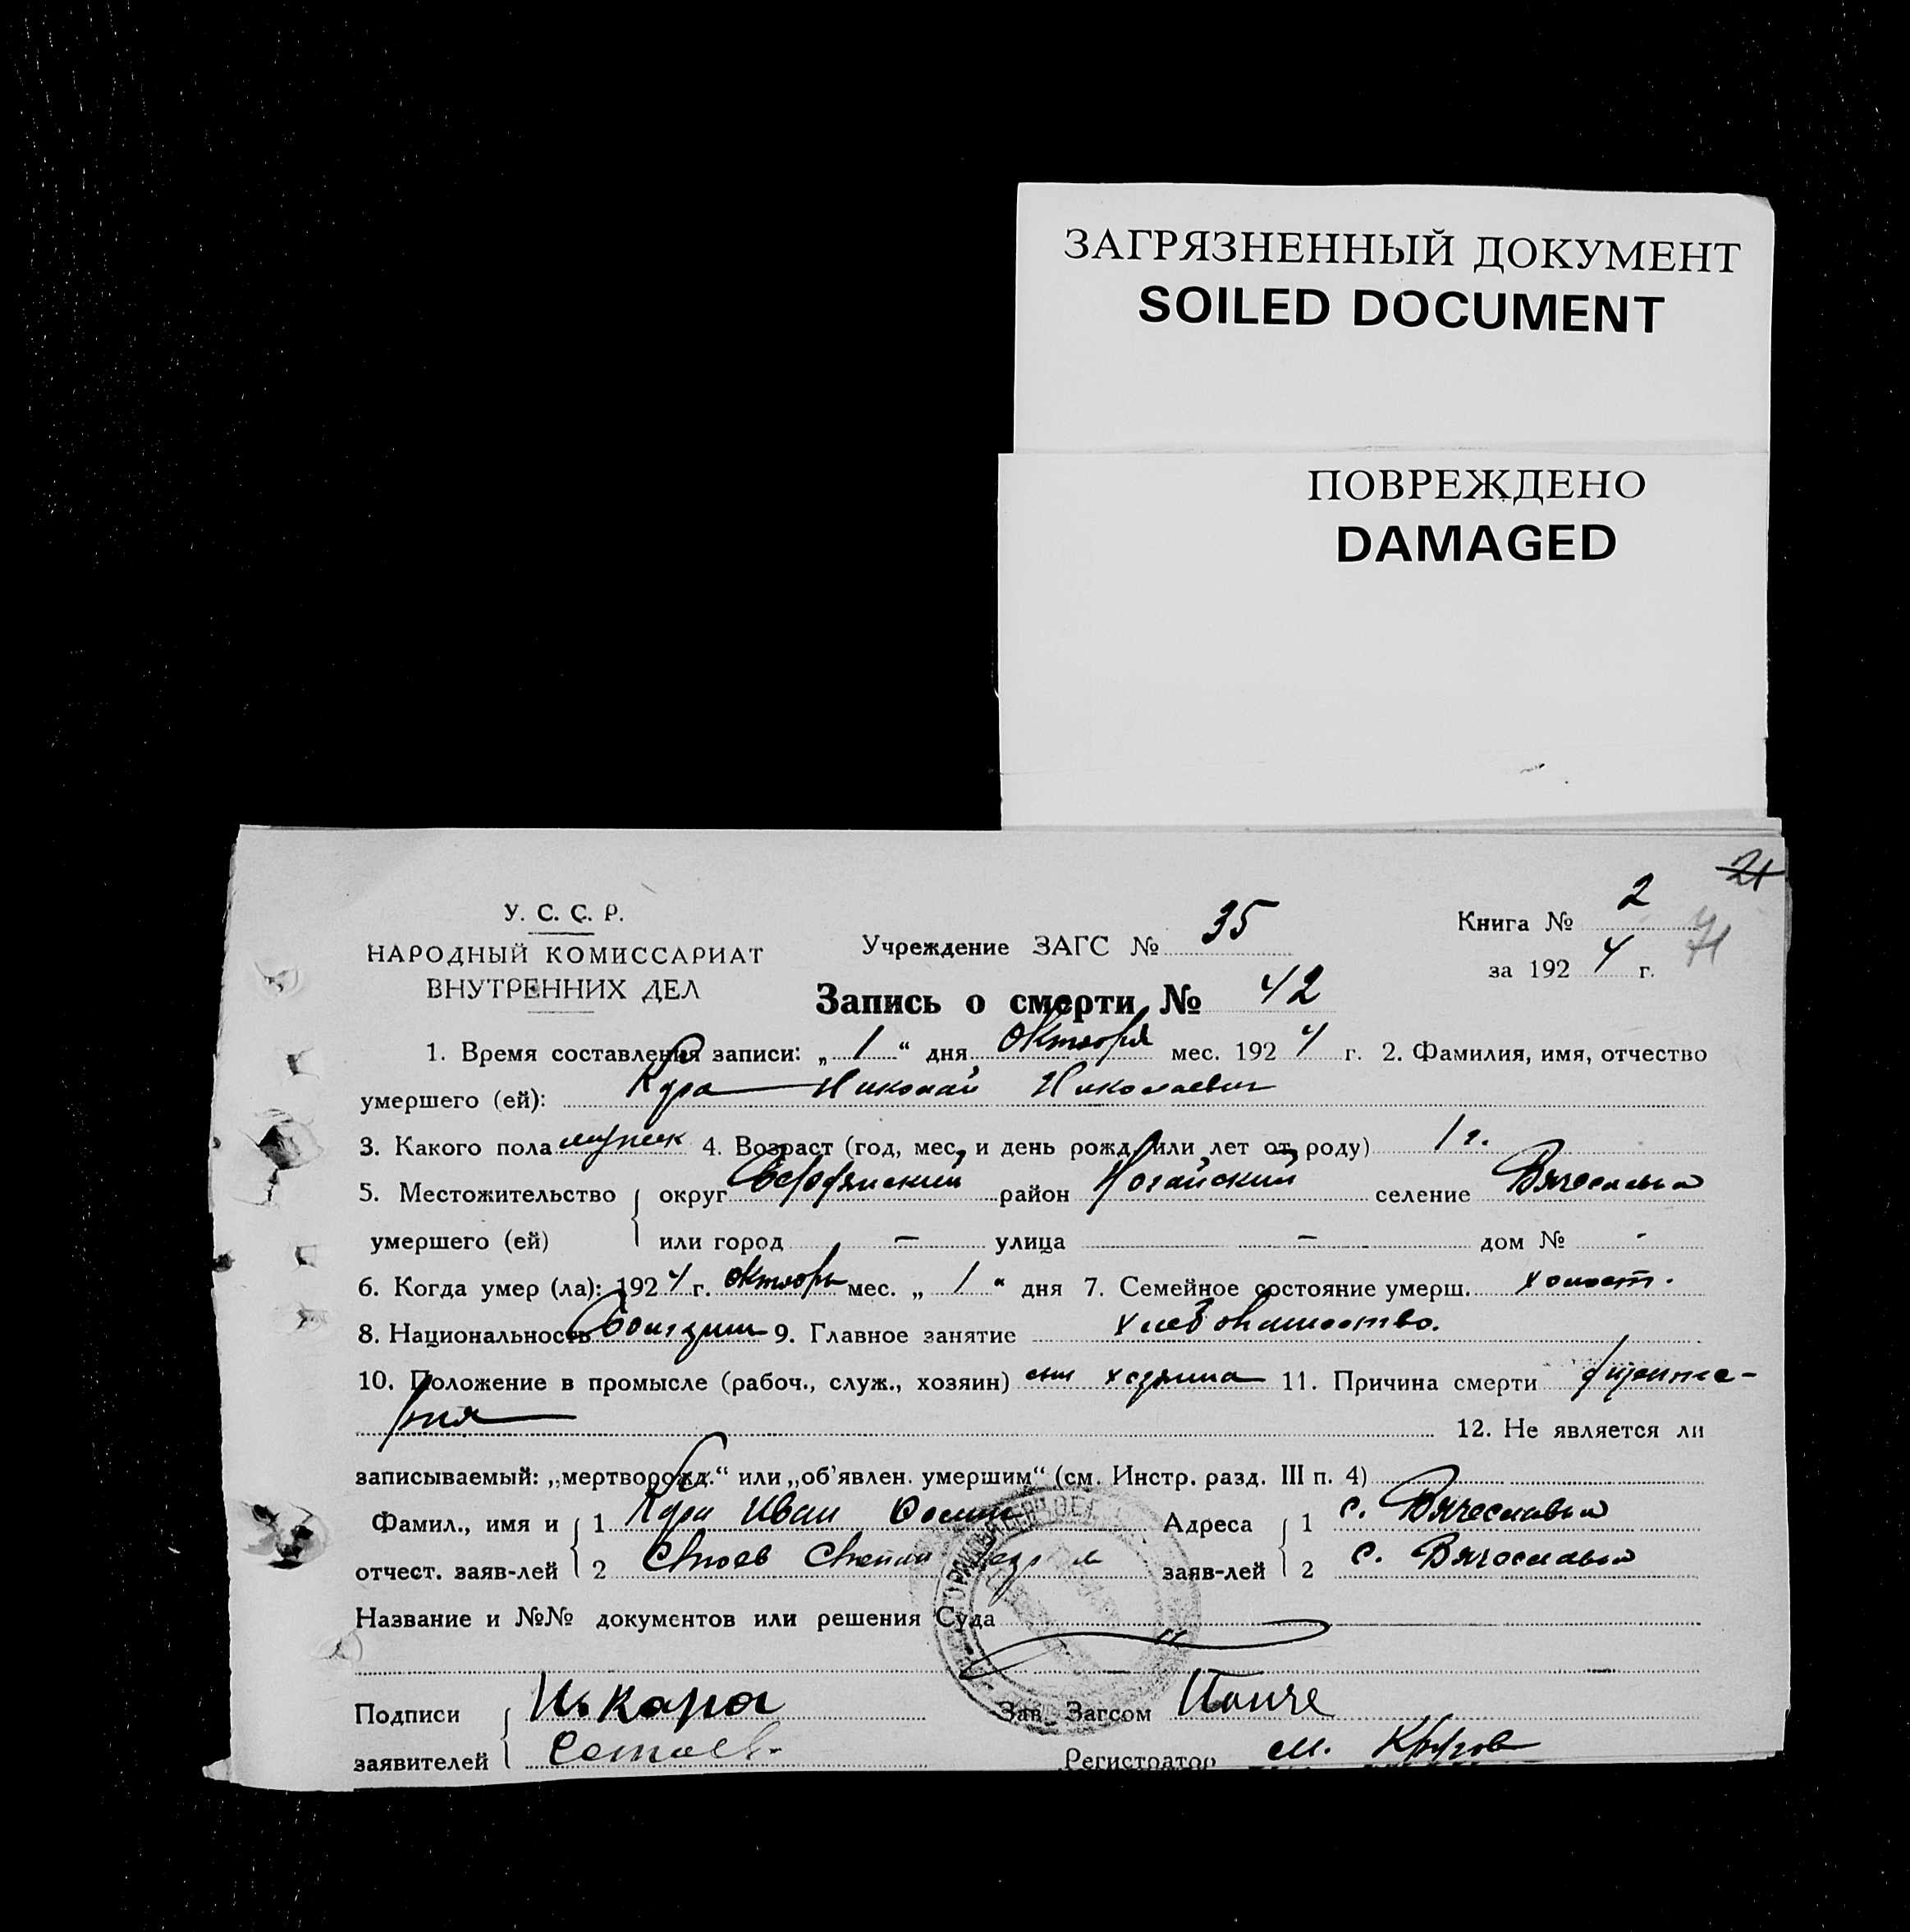 ЗАГРЯЗНЕННЫЙ ДОКУМЕНТ
SOILED DOCUMENT
ПОВРЕЖДЕНО
DAMAGED
21
У. С. С. Р.
НАРОДНЫЙ КОМИССАРИАТ
ВНУТРЕННИХ ДЕЛ
Учреждение ЗАГС № 35
Книга № 2
71
за 1924 г.
Запись о смерти № 42
1. Время составления записи: „1“ дня Октября мес. 1924 г. 2. Фамилия, имя, отчество
умершего (ей): Кара Николай Николаевич
3. Какого пола мужск 4. Возраст (год, мес. и день рожд. или лет от роду) 1 г.
5. Местожительство округ Бердянский район Ногайский селение Вячеславка
умершего (ей) или город — улица — дом № -
6. Когда умер (ла): 1924 г. октябрь мес. „1“ дня 7. Семейное состояние умерш. холост.
8. Национальность болгарин 9. Главное занятие хлебопашество.
10. Положение в промысле (рабоч., служ., хозяин) сын хозяина 11. Причина смерти дизенте-
рия 12. Не является ли
записываемый: „мертворожд.“ или „об'явлен. умершим“ (см. Инстр. разд. III п. 4)
Фамил., имя и 1 Кара Иван Адреса 1 с. Вячеславка
отчест. заяв-лей 2 Степан заяв-лей 2 с. Вячеславка
Название и №№ документов или решения Суда
Подписи И. Кара Зав. Загсом
заявителей Регистратор М.